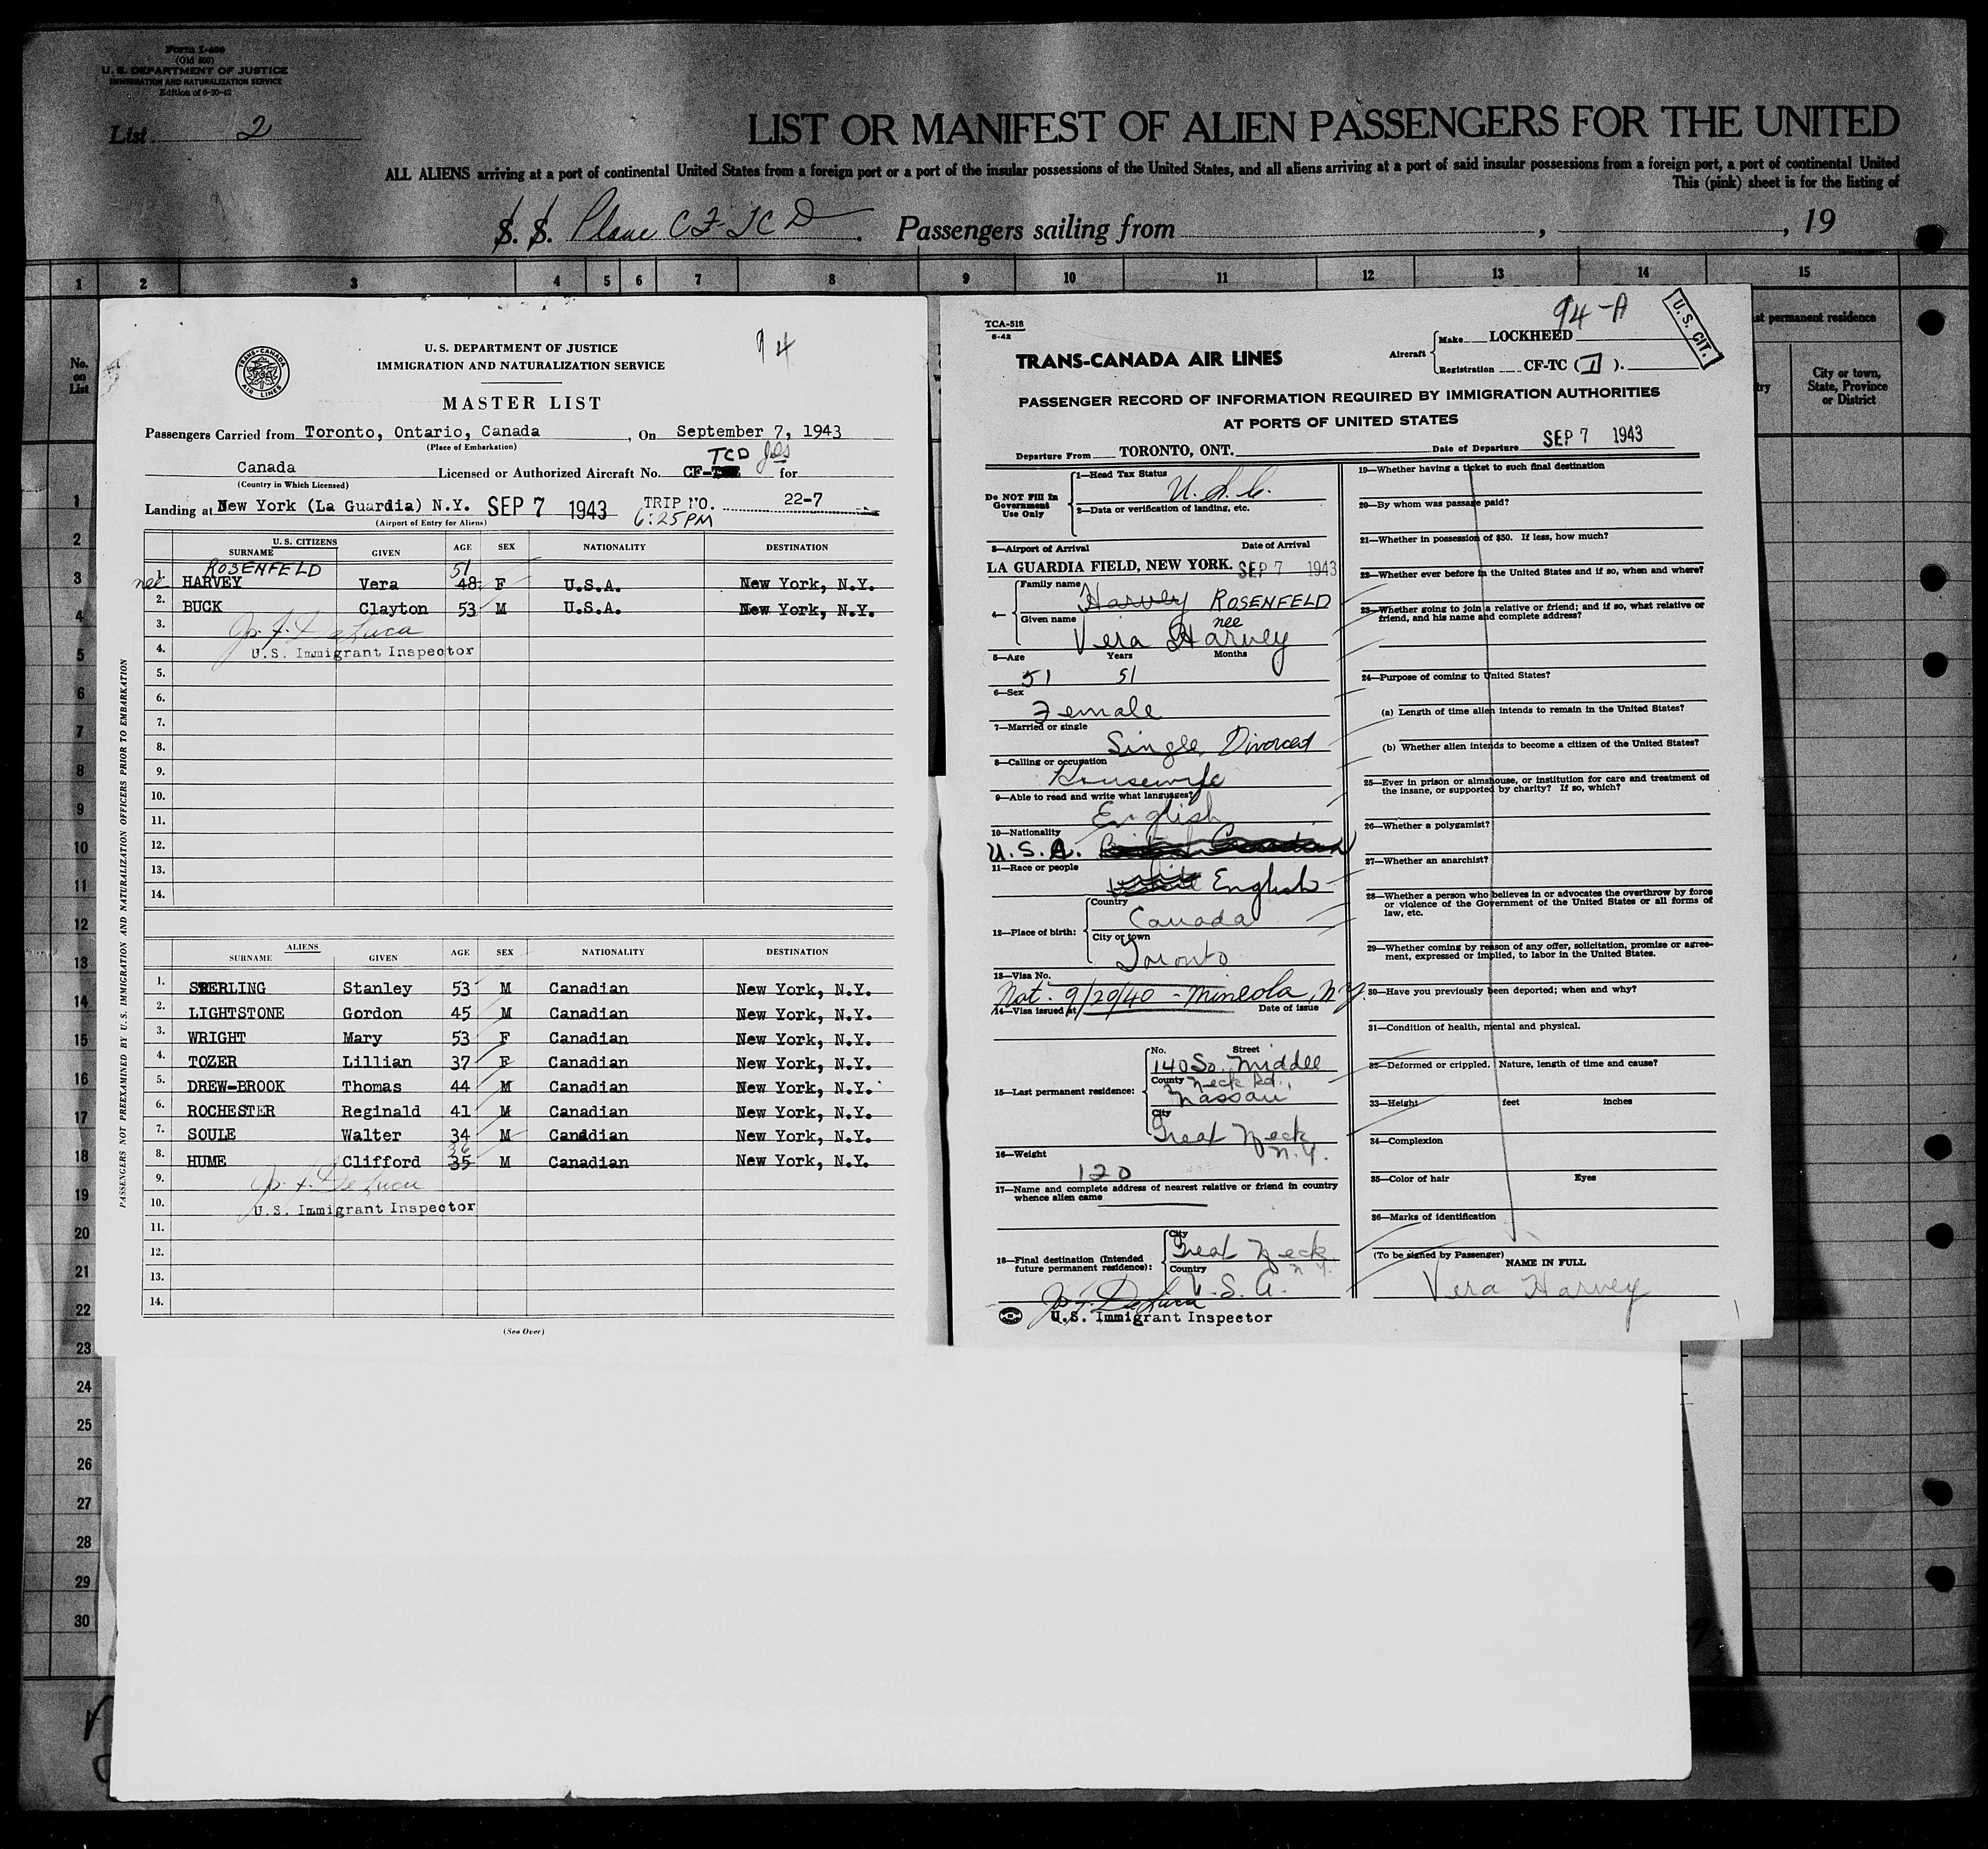 Form I-400
(Old 500)
U. S. DEPARTMENT OF JUSTICE
IMMIGRATION AND NATURALIZATION SERVICE
Edition of 6-20-42
List 2
LIST OR MANIFEST OF ALIEN PASSENGERS FOR THE UNITED
ALL ALIENS arriving at a port of continental United States from a foreign port or a port of the insular possessions of the United States, and all aliens arriving at a port of said insular possessions from a foreign port, a port of continental United
This (pink) sheet is for the listing of
S. S. Plane CF-TCD. Passengers sailing from , , 19
1 2 3 4 5 6 7 8 9 10 11 12 13 14 15
No. on List
st permanent residence
try
City or town, State, Province or District
1
2
3
4
5
6
7
8
9
10
11
12
13
14
15
16
17
18
19
20
21
22
23
24
25
26
27
28
29
30
94
TRANS-CANADA AIR LINES
U. S. DEPARTMENT OF JUSTICE
IMMIGRATION AND NATURALIZATION SERVICE
MASTER LIST
Passengers Carried from Toronto, Ontario, Canada, On September 7, 1943
(Place of Embarkation)
TCD
Canada Licensed or Authorized Aircraft No. CF- for
(Country in Which Licensed)
Landing at New York (La Guardia) N.Y. SEP 7 1943 TRIP NO. 22-7
(Airport of Entry for Aliens) 6:25PM
U. S. CITIZENS
SURNAME GIVEN AGE SEX NATIONALITY DESTINATION
ROSENFELD 51
1. nee HARVEY Vera 48 F U.S.A. New York, N.Y.
2. BUCK Clayton 53 M U.S.A. New York, N.Y.
3. Jo. F. DeLuca
4. U.S. Immigrant Inspector
5.
6.
7.
8.
9.
10.
11.
12.
13.
14.
PASSENGERS NOT PREEXAMINED BY U. S. IMMIGRATION AND NATURALIZATION OFFICERS PRIOR TO EMBARKATION
ALIENS
SURNAME GIVEN AGE SEX NATIONALITY DESTINATION
1. STERLING Stanley 53 M Canadian New York, N.Y.
2. LIGHTSTONE Gordon 45 M Canadian New York, N.Y.
3. WRIGHT Mary 53 F Canadian New York, N.Y.
4. TOZER Lillian 37 F Canadian New York, N.Y.
5. DREW-BROOK Thomas 44 M Canadian New York, N.Y.
6. ROCHESTER Reginald 41 M Canadian New York, N.Y.
7. SOULE Walter 34 M Canadian New York, N.Y.
36
8. HUME Clifford 35 M Canadian New York, N.Y.
9. Jo. F. DeLuca
10. U.S. Immigrant Inspector
11.
12.
13.
14.
(See Over)
94-A
U. S. CIT.
TCA-518
6-42
TRANS-CANADA AIR LINES
Aircraft Make LOCKHEED
Registration CF-TC ( ).
PASSENGER RECORD OF INFORMATION REQUIRED BY IMMIGRATION AUTHORITIES
AT PORTS OF UNITED STATES
Departure From TORONTO, ONT. Date of Departure SEP 7 1943
Do NOT Fill In Government Use Only
1—Head Tax Status
U.S.C.
2—Data or verification of landing, etc.
3—Airport of Arrival Date of Arrival
LA GUARDIA FIELD, NEW YORK. SEP 7 1943
4— Family name
Harvey ROSENFELD
Given name nee
Vera Harvey
5—Age Years Months
51 51
6—Sex
Female
7—Married or single
Single Divorced
8—Calling or occupation
Housewife
9—Able to read and write what languages?
English
10—Nationality
U.S.A. British Canadian
11—Race or people
white English
12—Place of birth: Country
Canada
City or town
Toronto
13—Visa No.
Nat. 9/20/40 - Mineola, N.Y.
14—Visa issued at Date of issue
15—Last permanent residence: No. Street
140 So. Middle
County Neck Rd.,
Nassau
City
Great Neck
N.Y.
16—Weight
120
17—Name and complete address of nearest relative or friend in country whence alien came
18—Final destination (Intended future permanent residence): City
Great Neck
N.Y.
Country
U.S.A.
Jo. F. DeLuca
U.S. Immigrant Inspector
19—Whether having a ticket to such final destination
20—By whom was passage paid?
21—Whether in possession of $50. If less, how much?
22—Whether ever before in the United States and if so, when and where?
23—Whether going to join a relative or friend; and if so, what relative or
friend, and his name and complete address?
24—Purpose of coming to United States?
(a) Length of time alien intends to remain in the United States?
(b) Whether alien intends to become a citizen of the United States?
25—Ever in prison or almshouse, or institution for care and treatment of
the insane, or supported by charity? If so, which?
26—Whether a polygamist?
27—Whether an anarchist?
28—Whether a person who believes in or advocates the overthrow by force
or violence of the Government of the United States or all forms of
law, etc.
29—Whether coming by reason of any offer, solicitation, promise or agree-
ment, expressed or implied, to labor in the United States.
30—Have you previously been deported; when and why?
31—Condition of health, mental and physical.
32—Deformed or crippled. Nature, length of time and cause?
33—Height feet inches
34—Complexion
35—Color of hair Eyes
36—Marks of identification
(To be signed by Passenger)
NAME IN FULL
Vera Harvey